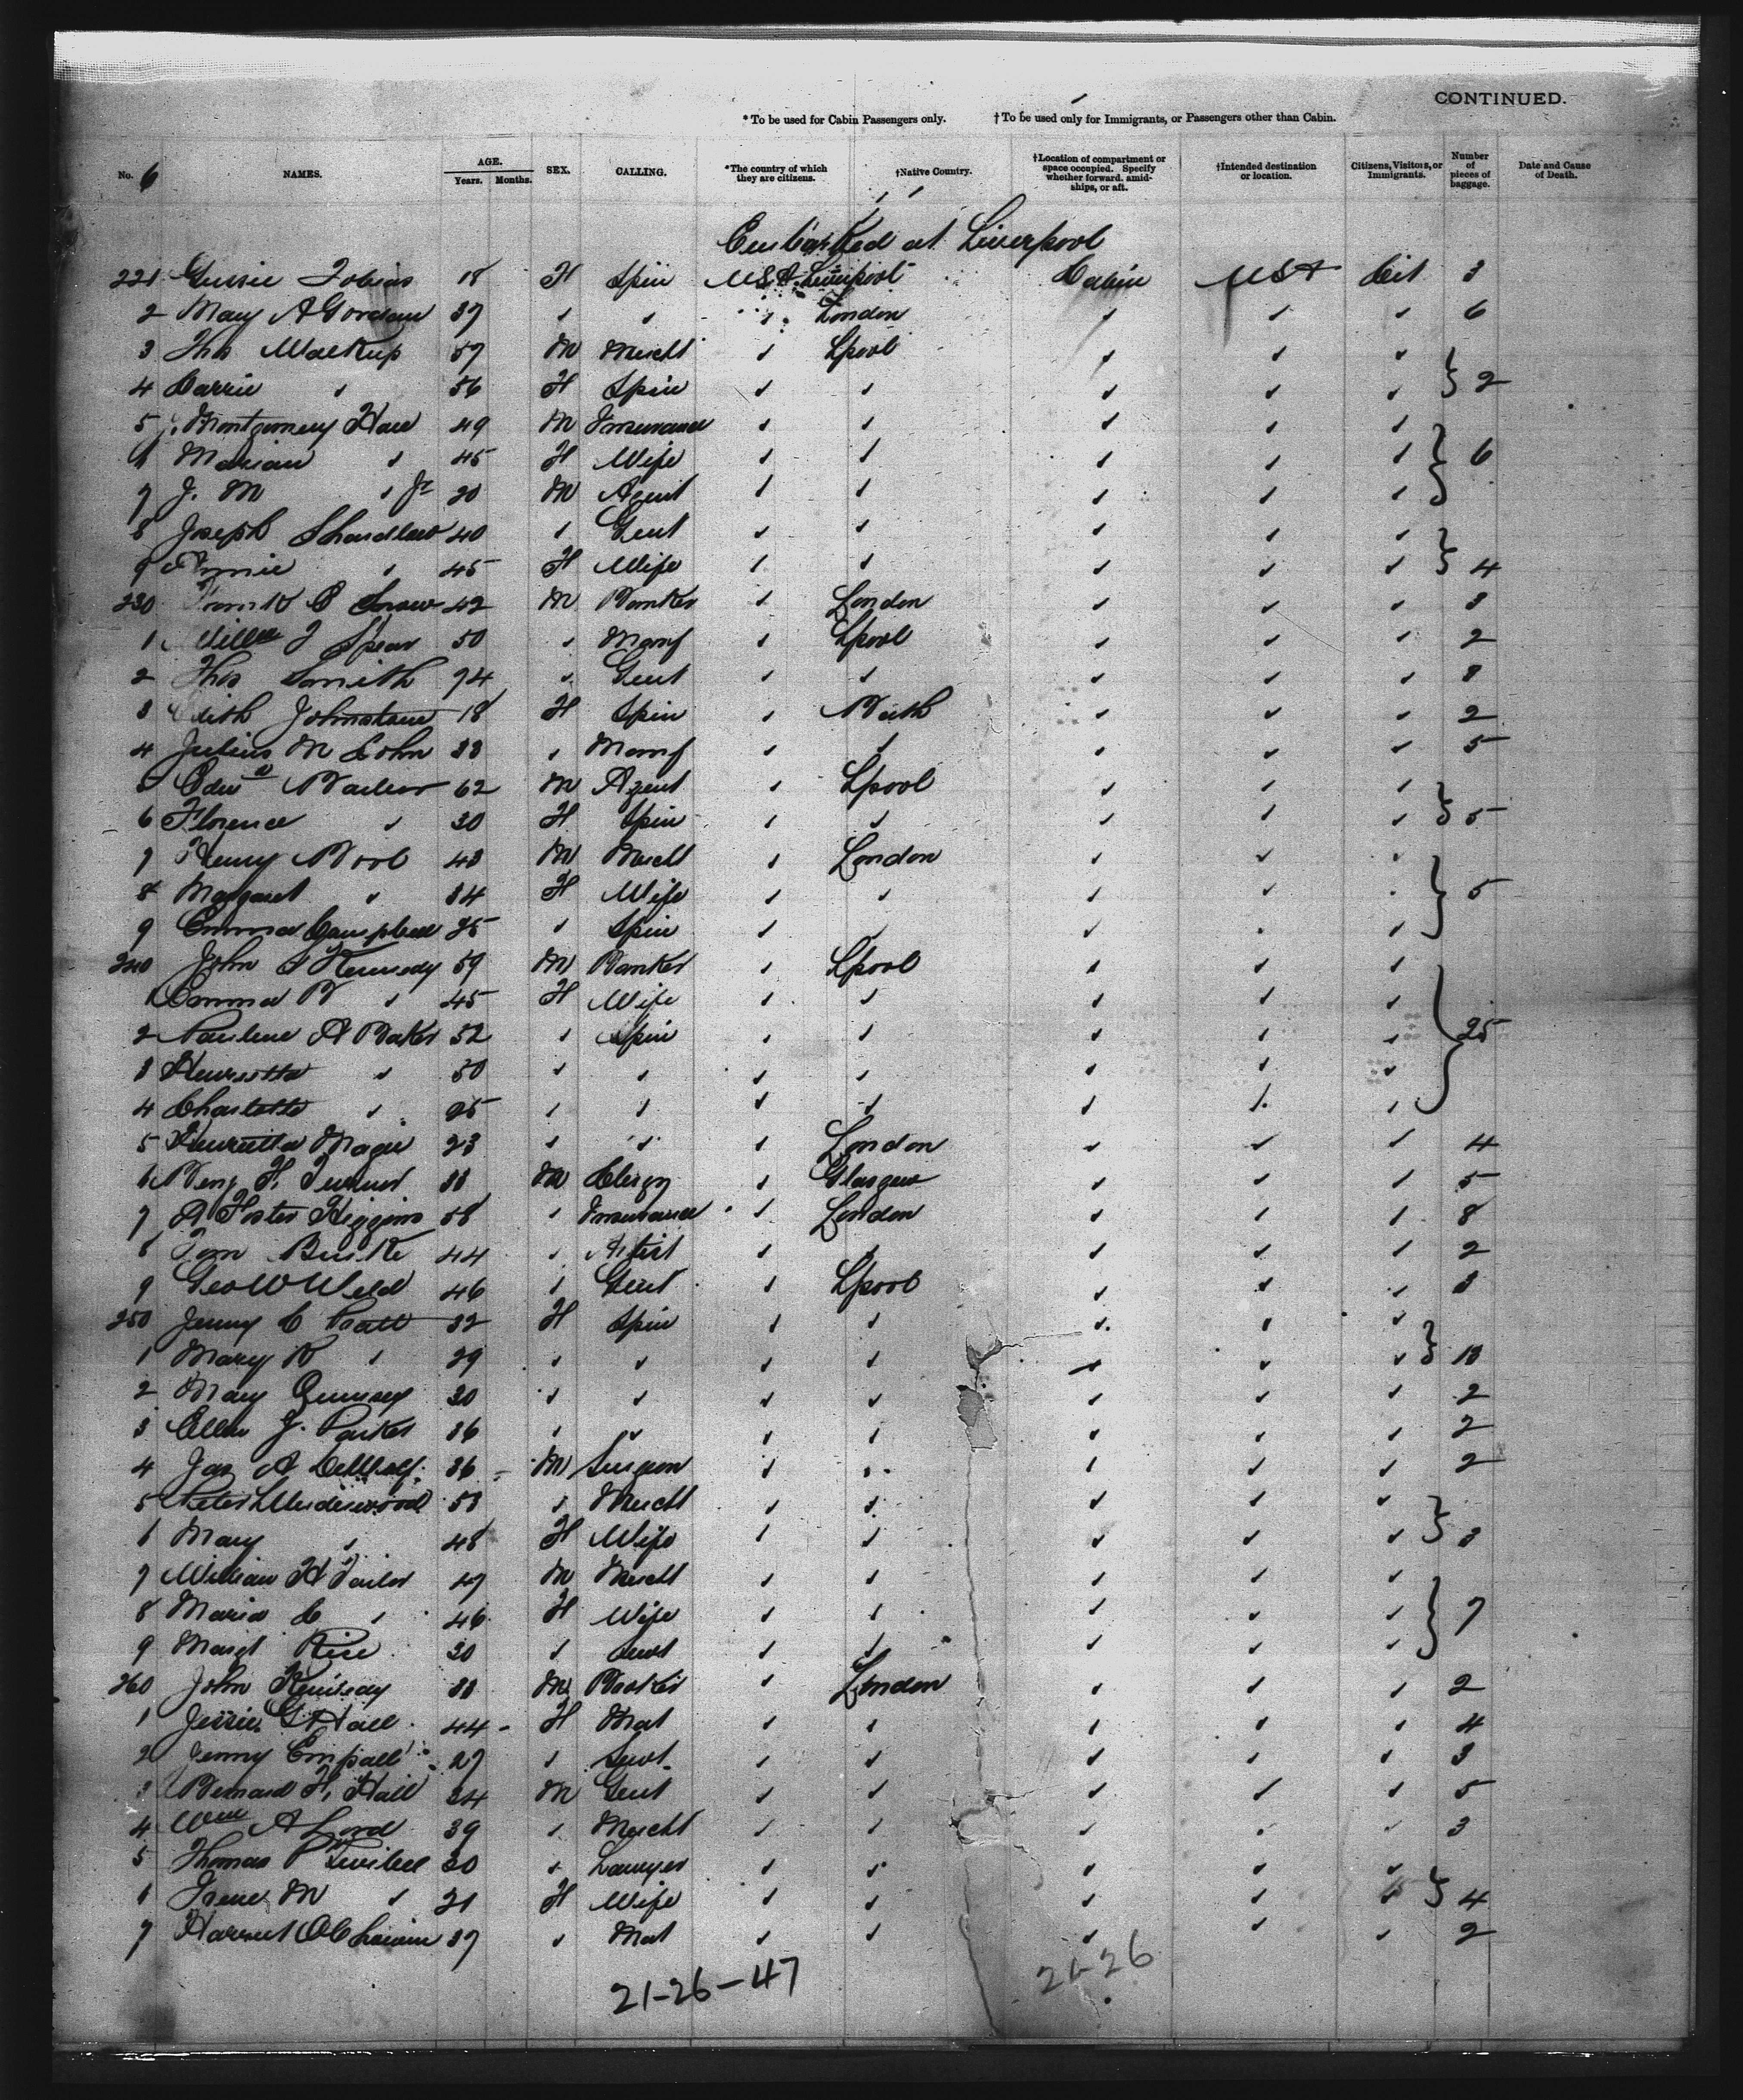 CONTINUED.
* To be used for Cabin Passengers only. † To be used only for Immigrants, or Passengers other than Cabin.
No. 6 NAMES. AGE. Years. Months. SEX. CALLING. *The country of which they are citizens. †Native Country. †Location of compartment or space occupied. Specify whether forward, amidships, or aft. †Intended destination or location. Citizens, Visitors, or Immigrants. Number of pieces of baggage. Date and Cause of Death.
Embarked at Liverpool
221 Gussie Tobias 18 F Spin USA Liverpool Cabin USA Cit 3
2 Mary A Gordon 37 " " " London " " " 6
3 Thos Walkup 57 M Mercht " Lpool " " "
4 Carrie " 56 F Spin " " " " " } 2
5 J. Montgomery Hare 49 M Insurance " " " " "
6 Marian " 45 F Wife " " " " " } 6
7 J. M " Jr 20 M Agent " " " " "
8 Joseph 40 " Gent " " " " "
9 " 45 F Wife " " " " " } 4
230 Frank C 42 M Banker " London " " " 3
1 J Spear 50 " Manf " Lpool " " " 2
2 Thos Smith 74 " Gent " " " " " 8
3 Edith Johnstone 18 F Spin " Bath " " " 2
4 Julius M Cohn 33 " Manf " " " " " 5
5 Edwd 62 M Agent " Lpool " " "
6 Florence " 30 F Spin " " " " " } 5
7 Henry 43 M Mercht " London " " "
8 Margaret " 34 F Wife " " " " " } 5
9 Emma Campbell 25 " Spin " " " " "
240 John S Kennedy 59 M Banker " Lpool " " "
1 Emma B " 45 F Wife " " " " "
2 Pauline A Baker 52 " Spin " " " " " } 25
3 Henrietta " 50 " " " " " " "
4 Charlotte " 25 " " " " " " "
5 Henrietta Magie 23 " " " London " " " 4
6 Benj F. Turner 33 M Clergy " Glasgow " " " 5
7 A Foster Higgins 58 " Insurance " London " " " 8
8 Tom Burke 44 " Artist " " " " " 2
9 Geo W Weld 46 " Gent " Lpool " " " 3
250 Jenny C Pratt 32 F Spin " " " " "
1 Mary R " 29 " " " " " " " } 13
2 Mary 30 " " " " " " " 2
3 Ellen J. Parker 36 " " " " " " " 2
4 Jas A 36 M Surgeon " " " " " 2
5 Peter Underwood 53 " Mercht " " " " "
6 Mary " 48 F Wife " " " " " } 3
7 William H Tailor 47 M Mercht " " " " "
8 Maria C " 46 F Wife " " " " " } 7
9 Margt Rice 30 " Servt " " " " "
260 John Kennedy 33 M " London " " " 2
1 Jessie G Hall 44 F Mat " " " " " 4
2 Jenny 27 " Servt " " " " " 3
3 Bernard F. Hall 24 M Gent " " " " " 5
4 Wm A Lord 39 " Mercht " " " " " 3
5 Thomas P 30 " Lawyer " " " " "
6 Irene M " 21 F Wife " " " " " } 4
7 Harriet 37 " Mat " " " " " 2
21-26-47 21-26